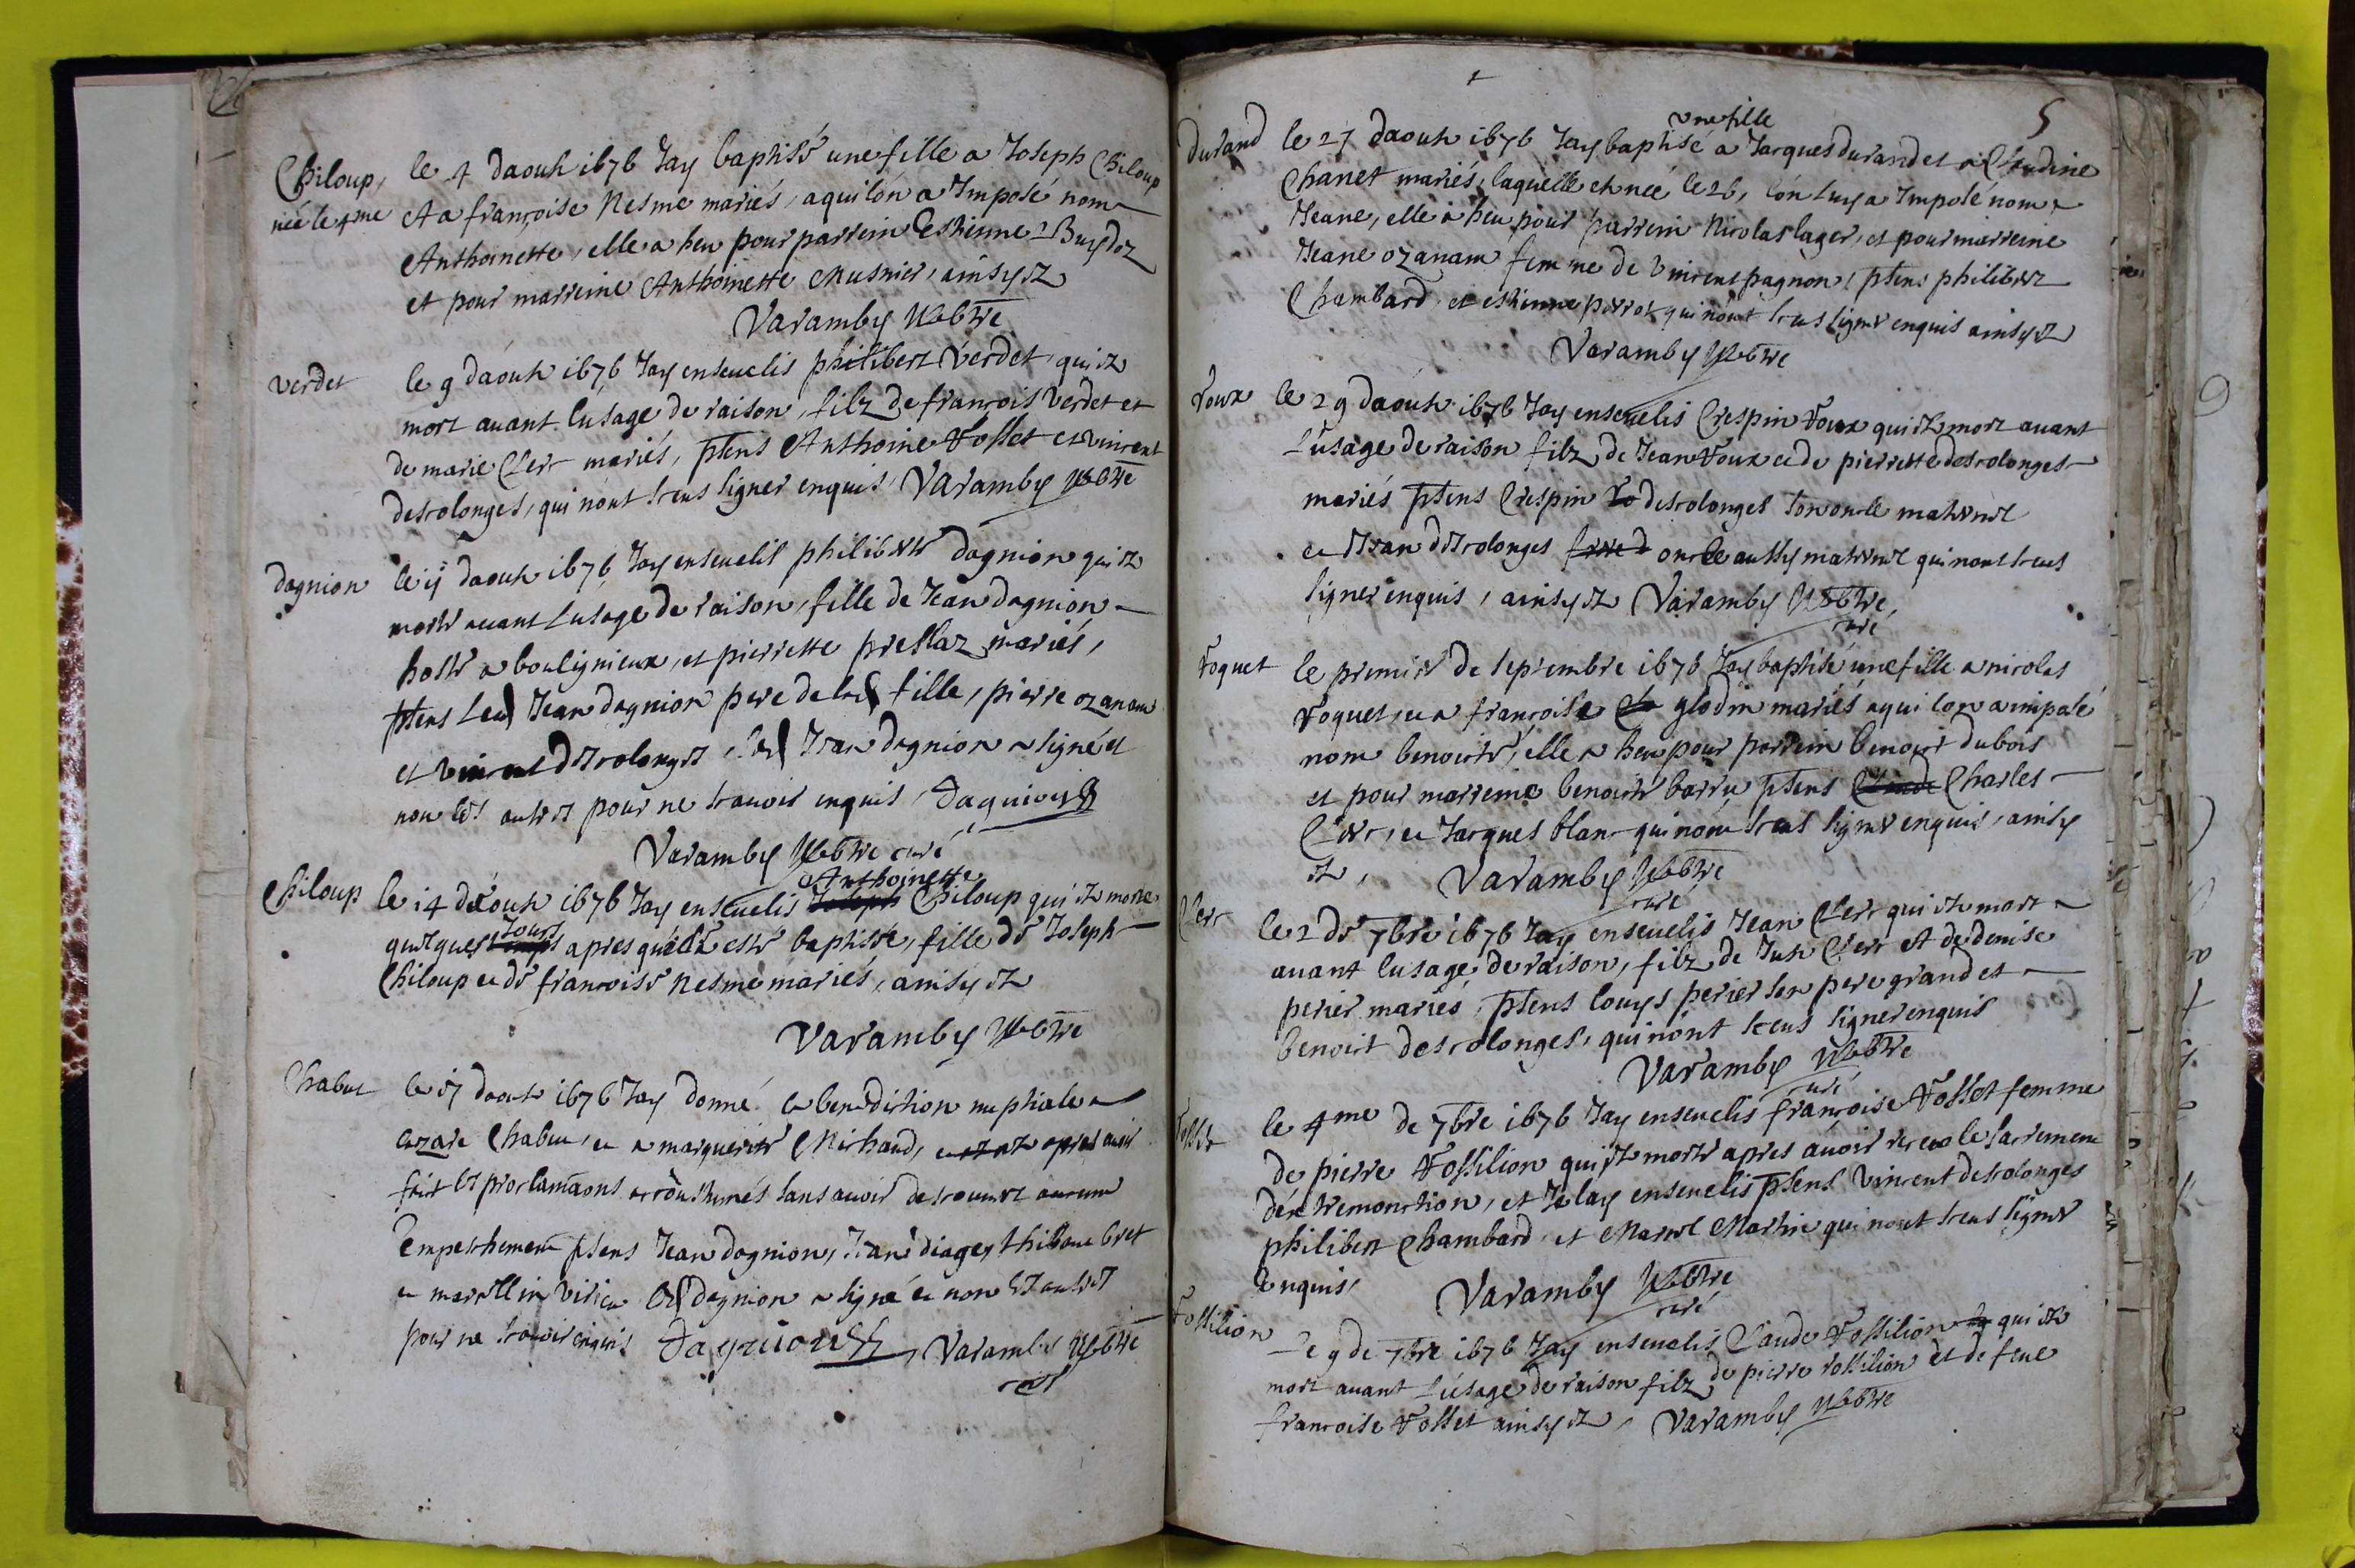 Chiloup,
née le 4me
le 4 daoust 1676 Jay baptisé une fille a Joseph Chiloup
et a françoise Nesme mariés, a qui lon a Imposé nom
Anthoinette, elle a heu pour parrein Estienne Buydoz
et pour marreine Anthoinette Musnier, ainsy est
Varamby Ptbre
verdet
le 9 daoust 1676 Jay enseuelis philibert verdet qui est
mort auant lusage de raison, filz de françois verdet et
de marie Clerc mariés, ptens Anthoine Vosset et vincent
descolonges, qui nont sceus signer enquis, Varamby Ptbre
dagnion
le ij daoust 1676 Jay enseuelit philiberte dagnion qui est
morte auant lusage de raison, fille de Jean dagnion
hoste a boulignieux, et pierrette preslaz mariés,
ptens led Jean dagnion pere de lad fille, pierre ozanam
et vincent descolonges, led Jean dagnion a signé et
non les autres pour ne scauoir enquis, Dagnion
Varamby Ptbre curé
Chiloup
le 14 daoust 1676 Jay enseuelis Joseph Anthoinette Chiloup qui est morte
quelques jours apres quelle este baptisée, fille de Joseph
Chiloup et de françoise Nesme mariés, ainsy est
Varamby Ptbre
Chabut
le 17 daoust 1676 Jay donné la benediction nuptiale a
Chabut, et a marguerite Michaud, apres auoir
fait les proclamaons accoustumés sans auoir descouuert aucun
Empeschement ptens Jean dagnion, Jean diage, thibout bret
et led dagnion a signé et non les autres
pour ne scauoir enquis Dagnion, Varamby Ptbre
curé
5
durand
le 27 daoust 1676 Jay baptisé une fille a Jacques durand et a Claudine
Chanet mariés, laquelle est neé le 26, lon luy a Imposé nom
Jeane, elle a heu pour parrein Nicolas lager, et pour marreine
Jeane ozanam femme de vincent pagnon, ptens philibert
Chambard et estienne perrot qui nont sceus signer enquis ainsy est
Varamby Ptbre
Voux
le 29 daoust 1676 Jay enseuelis Crespin Voux qui est mort auant
lusage de raison filz de Jean Voux et de pierrette descolonges
mariés ptens Crespin Vo descolonges son oncle maternel
et Jean descolonges oncle aussy maternel qui nont sceus
signer enquis, ainsy est Varamby Ptbre,
curé
Voquet
le premier de septembre 1676 Jay baptisé une fille a nicolas
Voquet, et a françoise glodin mariés a qui lon a imposé
nom benoiste, elle a heu pour parrein benoist dubois
et pour marreine benoiste barru ptens Claude Charles
Clerc, et Jacques blanc qui nont sceus signer enquis, ainsy
est, Varamby Ptbre
curé
Clerc
le 2 de 7bre 1676 Jay enseuelis Jean Clerc qui est mort
auant lusage de raison, filz de Just Clerc et de denise
perier mariés, ptens louys perier son pere grand et
benoist descolonges, qui nont sceus signer enquis
Varamby Ptbre
curé
Vosset
le 4me de 7bre 1676 Jay enseuelis françoise Vosset femme
de pierre Vossilion qui est morte apres auoir receu le sacrement
dextremonction, et Je lay enseuelis ptens vincent descolonges
philibert Chambard, et Marcel Martin qui nont sceus signer
enquis, Varamby Ptbre
curé
Vossilion
Le 9 de 7bre 1676 Jay enseuelis Claude Vossilion qui est
mort auant lusage de raison filz de pierre Vossilion et de feue
francoise Vosset ainsy est, Varamby Ptbre